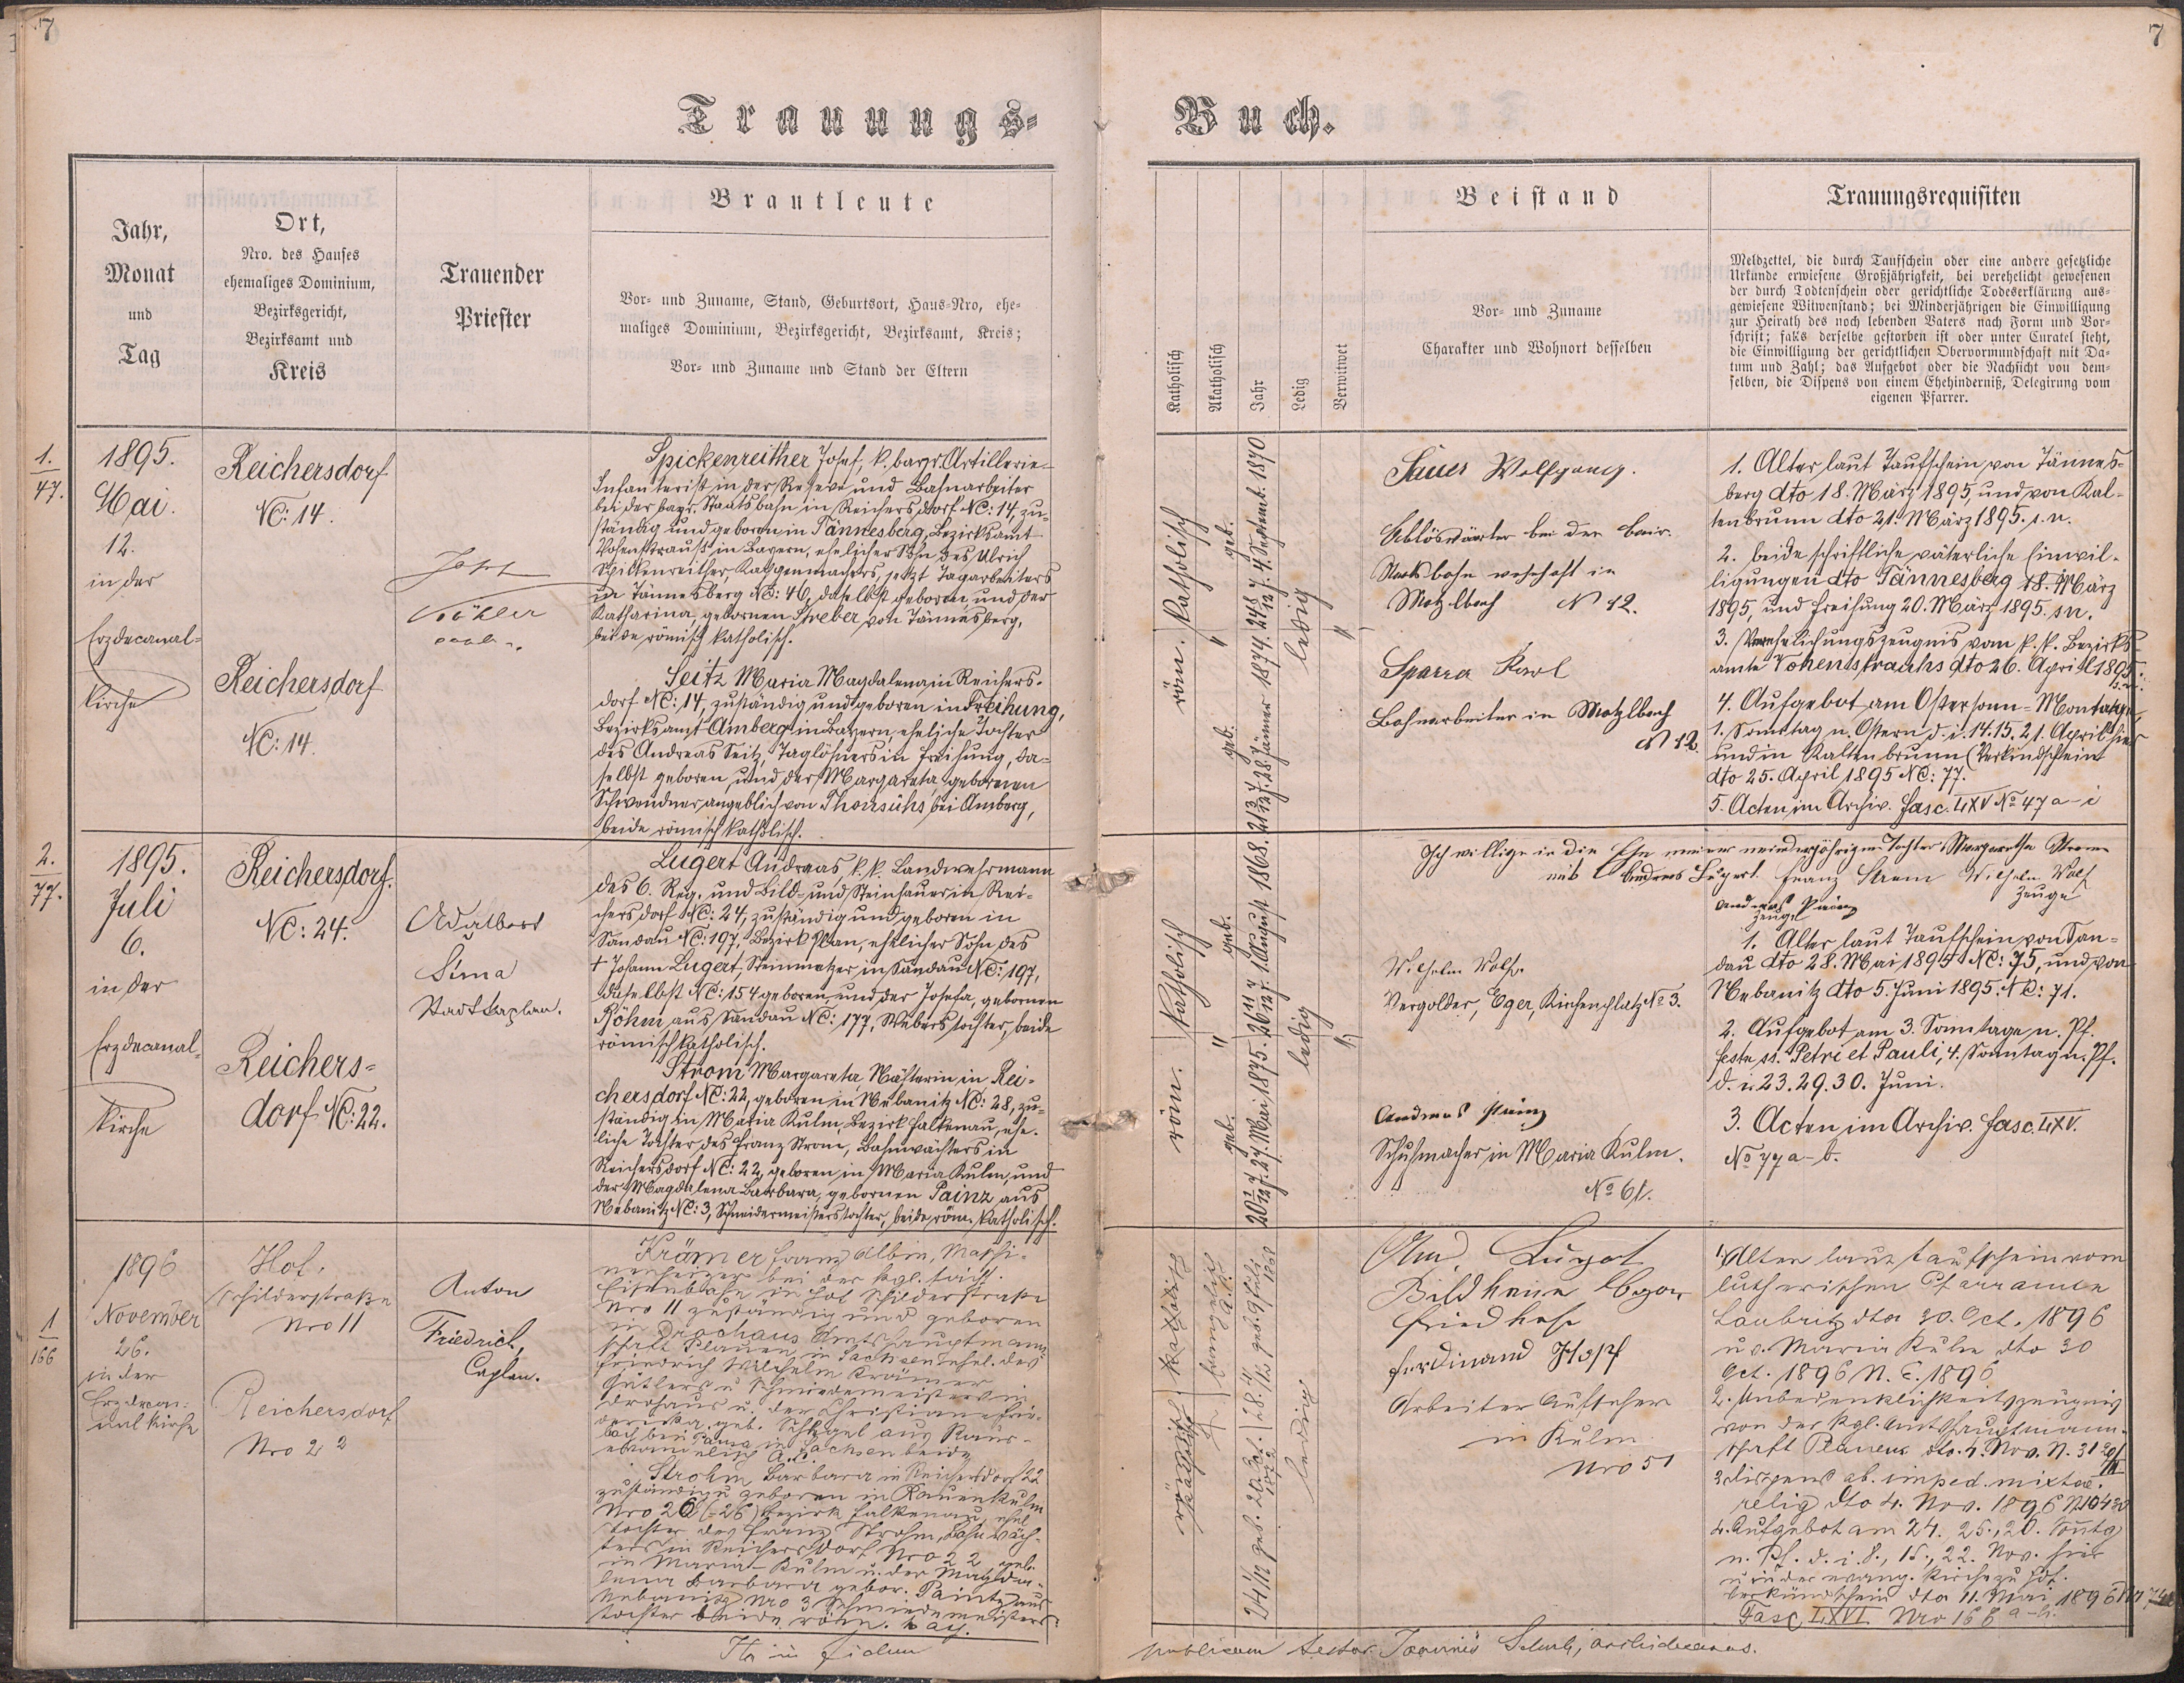 7
7
Trauungs-
Buch.
Jahr,
Monat
und
Tag
Ort,
Nro. des Hauses
ehemaliges Dominium,
Bezirksgericht,
Bezirksamt und
Kreis
Trauender
Priester
Brautleute
Vor- und Zuname, Stand, Geburtsort, Haus-Nro, ehe-
maliges Dominium, Bezirksgericht, Bezirksamt, Kreis;
Vor- und Zuname und Stand der Eltern
Katholisch
Akatholisch
Jahr
Ledig
Verwitwet
Beistand
Vor- und Zuname
Charakter und Wohnort desselben
Trauungsrequisiten
Meldzettel, die durch Taufschein oder eine andere gesetzliche
Urkunde erwiesene Großjährigkeit, bei verehelicht gewesenen
der durch Todtenschein oder gerichtliche Todeserklärung aus-
gewiesene Witwenstand; bei Minderjährigen die Einwilligung
zur Heirath des noch lebenden Vaters nach Form und Vor-
schrift; falls derselbe gestorben ist oder unter Curatel steht,
die Einwilligung der gerichtlichen Obervormundschaft mit Da-
tum und Zahl; das Aufgebot oder die Nachsicht von dem-
selben, die Dispens von einem Ehehinderniß, Delegirung vom
eigenen Pfarrer.
1.
47.
1895.
Mai.
12.
in der
Erzdecanal-
kirche
Reichersdorf
NC: 14.
Reichersdorf
NC: 14.
Köhler
Spickenreither Josef, k. bayr. Artillerie-
Infanterist in der Reserve und Bahnarbeiter
bei der bayr. Staatsbahn in Reichersdorf NC: 14, zu-
ständig und geboren in Tännesberg, Bezirksamt
Vohenstrauß in Bayern, ehelicher Sohn des Ulrich
Spickenreither, jetzt Tagarbeiters
in Tännesberg NC: 46, daselbst geboren, und der
Katharina, gebornen Streber, von Tännesberg,
beide römisch katholisch.
Seitz Maria Magdalena, in Reichers-
dorf NC: 14, zuständig und geboren in Freihung,
Bezirksamt Amberg in Bayern, eheliche Tochter
des Andreas Seitz, Taglöhners in Freihung, da-
selbst geboren, und der Margareta, gebornen
Schwendner, angeblich von Thonsühs, bei Amberg,
beide römisch katholisch.
röm. Katholisch
"
geb. 4. Septemb. 1870.
geb. 28. Jänner 1874.
ledig
"
Sauer Wolfgang.
Ablöswärter bei der bair.
Staatsbahn wohnhaft in
Matzlbach N 12.
Sparrer Karl
Bahnarbeiter in Matzlbach
N 12.
1. Alter laut Taufschein von Tännes-
berg dto 18. März 1895, und von Kal-
tenbrunn dto 21. März 1895. s. n.
2. beide schriftliche väterliche Einwil-
ligungen dto Tännesberg 18. März
1895, und Freihung 20. März 1895. s. n.
3. Verehelichungszeugnis vom k. k. Bezirks-
amte Vohenstrauhs dto 26. April 1895.
s. n.
4. Aufgebot am Ostersonn- Montage,
1. Sonntag n. Ostern d. i. 14. 15. 21. April hier
und in Kaltenbrunn (Verkündschein
dto 25. April 1895 NC: 77.
5. Acten im Archiv. Fasc. LXV No 47 a-i
2.
77.
1895.
Juli
6.
in der
Erzdecanal-
kirche
Reichersdorf.
NC: 24.
Reichers-
dorf NC: 22.
Adalbert
Sima
Stadtkaplan.
Lugert Andreas, k. k. Landwehrmann
des 6. Reg. und Bild- und Steinhauer in Rei-
chersdorf NC: 24, zuständig und geboren in
Sandau NC: 197, Bezirk Plan, ehelicher Sohn des
† Johann Lugert, Steinmetzer in Sandau NC: 197,
daselbst NC: 154 geboren, und der Josefa, gebornen
Böhm aus Sandau NC: 177, Weberstochter, beide
römisch katholisch.
Strom Margareta, Näherin in Rei-
chersdorf NC: 22, geboren in Nebanitz NC: 28, zu-
ständig in Maria Kulm, Bezirk Falkenau, ehe-
liche Tochter des Franz Strom, Bahnwächters in
Reichersdorf NC: 22, geboren in Maria Kulm, und
der Magdalena Barbara, gebornen Painz aus
Nebanitz NC: 3, Schneidermeisterstochter, beide röm. katholisch.
röm. Katholisch
"
geb. 1. August 1868.
geb. 27. Mai 1875.
ledig
Ich willige in die Ehe meiner minderjährigen Tochter Margaretha Strom
mit Andreas Lugert. Franz Strom Wilhelm Wolf
Zeuge
Andreas Painz
Zeuge
Wilhelm Wolf.
Vergolder, Eger, Kirchenplatz No 3.
Andreas Painz
Schuhmacher in Maria Kulm.
No 61.
1. Alter laut Taufschein von San-
dau dto 28. Mai 1895 NC: 75, und von
Nebanitz dto 5. Juni 1895. NC: 71.
2. Aufgebot am 3. Sonntage n. Pf.
Feste ss. Petri et Pauli, 4. Sonntag n. Pf.
d. i. 23. 29. 30. Juni.
3. Acten im Archiv. Fasc. LXV.
No 77 a-b.
1
166
1896
November
26.
in der
Erzdecan-
nal kirche
Hof,
Schilderstraße
Nro 11
Reichersdorf
Nro 22
Anton
Friedrich,
Caplan.
Krämer Franz Albin, Maschi-
nenheizer bei der kgl. sächs.
Eisenbahn in Hof Schilderstraße
Nro 11 zuständig und geboren
in Drochaus Amtshauptmann-
schaft Plauen in Sachsen, ehel. des
Friedrich Wilhelm Krämer
Gütlers u. Schmiedemeisters in
Drochaus u. der Christiane Frie-
dericka geb. Schlegel aus Raus-
bach bei Pausa in Sachsen beide
evangelisch A.C.
Strohm Barbara in Reichersdorf 22
zuständig u. geboren in Kulm
Nro 26 (=26) Bezirk Falkenau, ehel.
Tochter des Franz Strohm, Bahnwäch-
ters in Reichersdorf Nro 22 geb.
in Maria-Kulm u. der Magda-
lena Barbara gebor. Paintz aus
Nebanitz Nro 3 Schmiedemeisters-
tochter beide röm. kath.
geb. 9 Juli 1868
ledig
And. Lugert
Bildhauer Eger
Friedhof
Ferdinand Hopf
Arbeiter Aufseher
in Kulm
Nro 51
1. Alter laut Taufschein vom
lutherischen Pfarramte
dto 30. Oct. 1896
u. v. Maria Kulm dto 30
Oct. 1896 N. E. 1896
2. Unbedenklichkeitszeugnis
von der kgl. Amtshauptmann-
schaft Plauen dto. 4. Nov.
3. Dispens ab. imped. mixtae
relig dto 4. Nov. 1896
4. Aufgebot am 24. 25., 26. Sontg
n. Pf. d. i. 8., 15., 22. Nov. hier
u. in der evang. Kirche zu Hof.
Verkündschein dto 11. Mai 1896
Fasc LXVI. Nro 166 a-h.
Ita in fidem
publicam testor Joannes archidecanus.